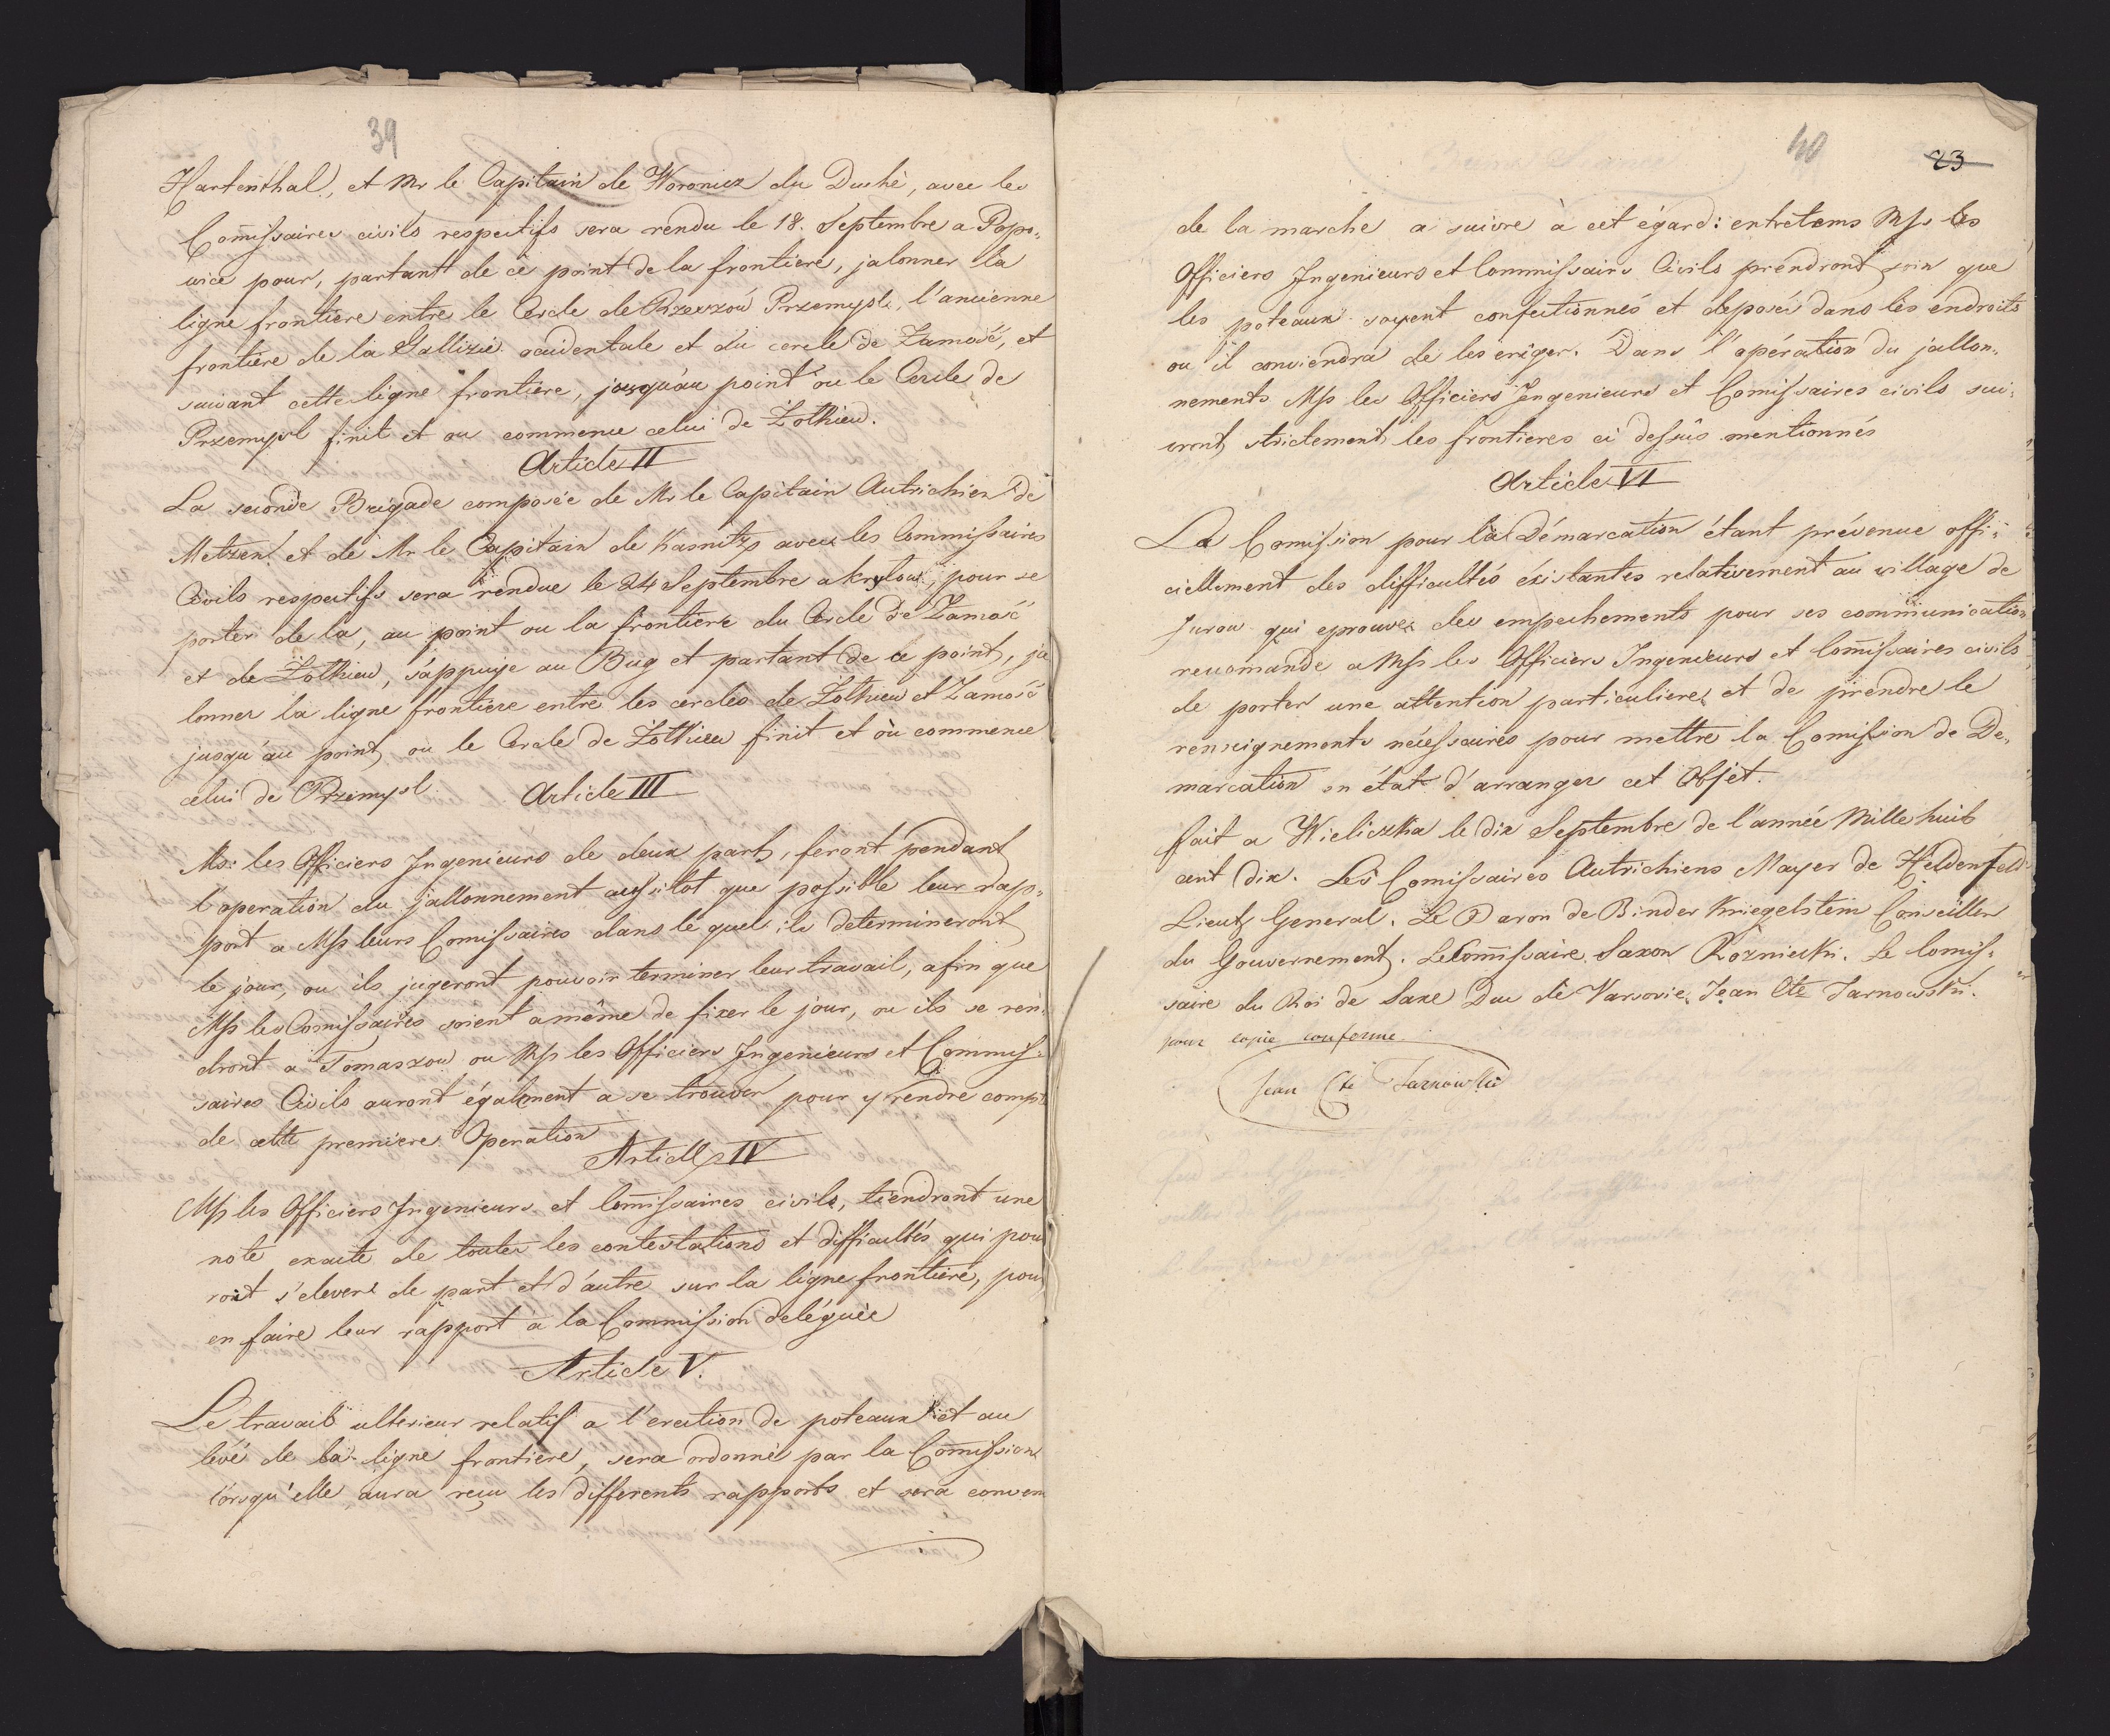 39
Hartenthal, et Mr le Capitain de Woronicz du Duché, avec les
Com̄issaires civils respectifs sera rendu le 18. Septembre a Popo-
wice pour, partant de cè point de la frontiere, jalonner la
ligne frontiere entre le Cercle de Rzeszów Przemysl, l'ancienne
frontiere de la Gallizie occidentale et du cercle de Zamość, et
suivant cette ligne frontiere, jusqu'au point ou le Cercle de
Przemysl finit et ou commence celui de Żołkiew.
Article II
La seconde Brigade composée de Mr le Capitain Autrichien de
Metzen et de Mr le Capitain de avec les Commissaires
Civils respectifs sera rendue le 24 Septembre a Krylow, pour se
porter de la, au point ou la frontiere du Cercle de Zamość
et de Żołkiew, s'appuye au Bug et partant de ce point, ja
lonner la ligne frontiere entre les cercles de Żołkiew et Zamość
jusqu'au point, ou le Cercle de Żołkiew finit et où commence
celui de Przemysl
Article III
Ms: les Officiers Ingenieurs de deux parts, feront pendant
l'operation du jallonnement aussitot que possible leur rap-
port a Mss leurs Comissaires dans le quel ils determineront
le jour, ou ils jugeront pouvoir terminer leur travail, afin que
Mss les Comissaires soient a même de fixer le jour, ou ils se ren-
dront a Tomaszow ou Mss les Officiers Ingenieurs et Commis-
saires Civils auront également a se trouver pour y rendre compte
de cette premiere Operation
Article IV
Mss les Officiers Ingenieurs et Com̄issaires civils, tiendront une
note exacte de toutes les contestations et difficultés qui pou
roit s'elever de part et d'autre sur la ligne frontiere, pour
en faire leur rapport à la Commission deléguée
Article V.
Le travail ulterieur relatif a l'erection de poteaux et au
levé de la ligne frontiere, sera ordonné par la Com̄ission
lorsqu'elle aura reçu les differents rapports et sera conven
40
23
de la marche a suivre à cet égard: entretems Mss les
Officiers Ingenieurs et Commissairs Civils prendront soin que
les poteaux soyent confectionnés et deposés dans les endroits
ou il conviendra de les eriger. Dans l'opération du jallon-
nements Mss les Officiers Ingenieurs et Comissaires civils sui-
vront strictement les frontieres ci dessûs mentionnés
Article VI
La Comission pour la Démarcation étant prévenue offi-
ciellement des difficultés éxistantes relativement au village de
Jurow qui eprouve des empechements pour ses communication
recomande a Mss les Officiers Ingenieurs et Com̄issaires civils
de porter une attention particuliere et de prendre le
renseignements nécessaires pour mettre la Comission de De-
marcation en état d'arranger cet Objet.
fait a Wieliczka le dix Septembre de l'année Mille huit
cent dix. Les Comissaires Autrichiens Mayer de Heldenfeld
Lieut General. Le Baron de Binder Kriegelstein Conseiller
du Gouvernement. Le Com̄issaire Saxon Rożniecki. Le Comis-
saire du Roi de Saxe Duc de Varsovie, Jean Cte Tarnowski.
pour copie conforme
Jean Cte Tarnowski